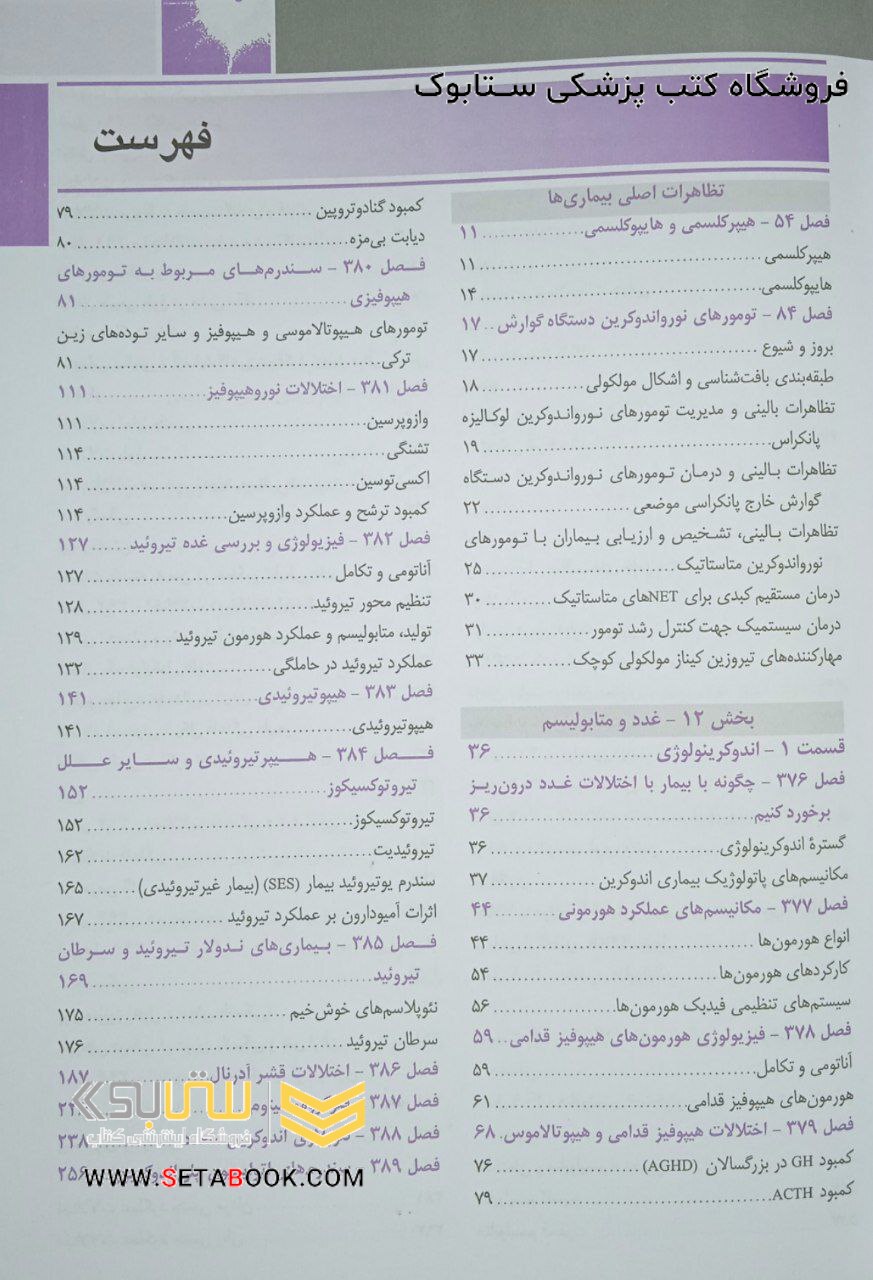 فروشگاه کتب پزشکی ستابوک
فهرست
تظاهرات اصلی بیماری‌ها
فصل ۵۴ - هیپرکلسمی و هایپوکلسمی ۱۱
هیپرکلسمی ۱۱
هایپوکلسمی ۱۴
فصل ۸۴ - تومورهای نورواندوکرین دستگاه گوارش ۱۷
بروز و شیوع ۱۷
طبقه‌بندی بافت‌شناسی و اشکال مولکولی ۱۸
تظاهرات بالینی و مدیریت تومورهای نورواندوکرین لوکالیزه
پانکراس ۱۹
تظاهرات بالینی و درمان تومورهای نورواندوکرین دستگاه
گوارش خارج پانکراسی موضعی ۲۲
تظاهرات بالینی، تشخیص و ارزیابی بیماران با تومورهای
نورواندوکرین متاستاتیک ۲۵
درمان مستقیم کبدی برای NETهای متاستاتیک ۳۰
درمان سیستمیک جهت کنترل رشد تومور ۳۱
مهارکننده‌های تیروزین کیناز مولکولی کوچک ۳۳
بخش ۱۲ - غدد و متابولیسم
قسمت ۱ - اندوکرینولوژی ۳۶
فصل ۳۷۶ - چگونه با بیمار با اختلالات غدد درون‌ریز
برخورد کنیم ۳۶
گسترهٔ اندوکرینولوژی ۳۶
مکانیسم‌های پاتولوژیک بیماری اندوکرین ۳۷
فصل ۳۷۷ - مکانیسم‌های عملکرد هورمونی ۴۴
انواع هورمون‌ها ۴۴
کارکردهای هورمون‌ها ۵۴
سیستم‌های تنظیمی فیدبک هورمون‌ها ۵۶
فصل ۳۷۸ - فیزیولوژی هورمون‌های هیپوفیز قدامی ۵۹
آناتومی و تکامل ۵۹
هورمون‌های هیپوفیز قدامی ۶۱
فصل ۳۷۹ - اختلالات هیپوفیز قدامی و هیپوتالاموس ۶۸
کمبود GH در بزرگسالان (AGHD) ۷۶
کمبود ACTH ۷۹
کمبود گنادوتروپین ۷۹
دیابت بی‌مزه ۸۰
فصل ۳۸۰ - سندرم‌های مربوط به تومورهای
هیپوفیزی ۸۱
تومورهای هیپوتالاموسی و هیپوفیز و سایر توده‌های زین
ترکی ۸۱
فصل ۳۸۱ - اختلالات نوروهیپوفیز ۱۱۱
وازوپرسین ۱۱۱
تشنگی ۱۱۴
اکسی‌توسین ۱۱۴
کمبود ترشح و عملکرد وازوپرسین ۱۱۴
فصل ۳۸۲ - فیزیولوژی و بررسی غده تیروئید ۱۲۷
آناتومی و تکامل ۱۲۷
تنظیم محور تیروئید ۱۲۸
تولید، متابولیسم و عملکرد هورمون تیروئید ۱۲۹
عملکرد تیروئید در حاملگی ۱۳۲
فصل ۳۸۳ - هیپوتیروئیدی ۱۴۱
هیپوتیروئیدی ۱۴۱
فصل ۳۸۴ - هیپرتیروئیدی و سایر علل
تیروتوکسیکوز ۱۵۲
تیروتوکسیکوز ۱۵۲
تیروئیدیت ۱۶۲
سندرم یوتیروئید بیمار (SES) (بیمار غیرتیروئیدی) ۱۶۵
اثرات آمیودارون بر عملکرد تیروئید ۱۶۷
فصل ۳۸۵ - بیماری‌های ندولار تیروئید و سرطان
تیروئید ۱۶۹
نئوپلاسم‌های خوش‌خیم ۱۷۵
سرطان تیروئید ۱۷۶
فصل ۳۸۶ - اختلالات قشر آدرنال ۱۸۷
فصل ۳۸۷ -
فصل ۳۸۸ - ۲۳۸
فصل ۳۸۹ - ۲۵۶
ستابوک
فروشگاه اینترنتی کتاب
WWW.SETABOOK.COM